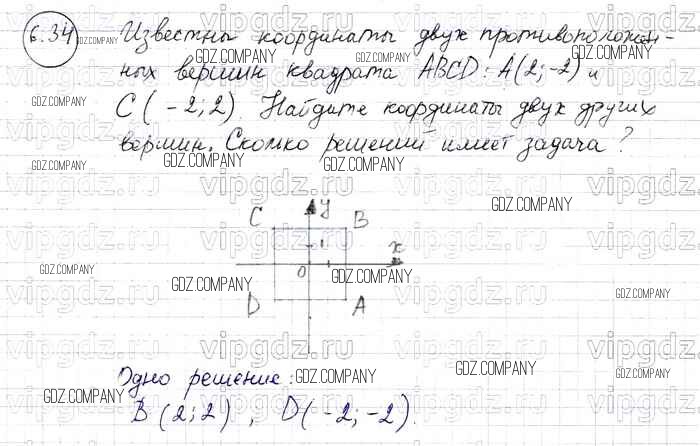 6.34 Известны координаты двух противоположен-
ных вершин квадрата ABCD: A(2;-2) и
C(-2;2). Найдите координаты двух других
вершин. Сколько решений имеет задача?
y
C B
1
x
0
D A
Одно решение:
B(2;2), D(-2;-2).
GDZ.COMPANY
vipgdz.ru